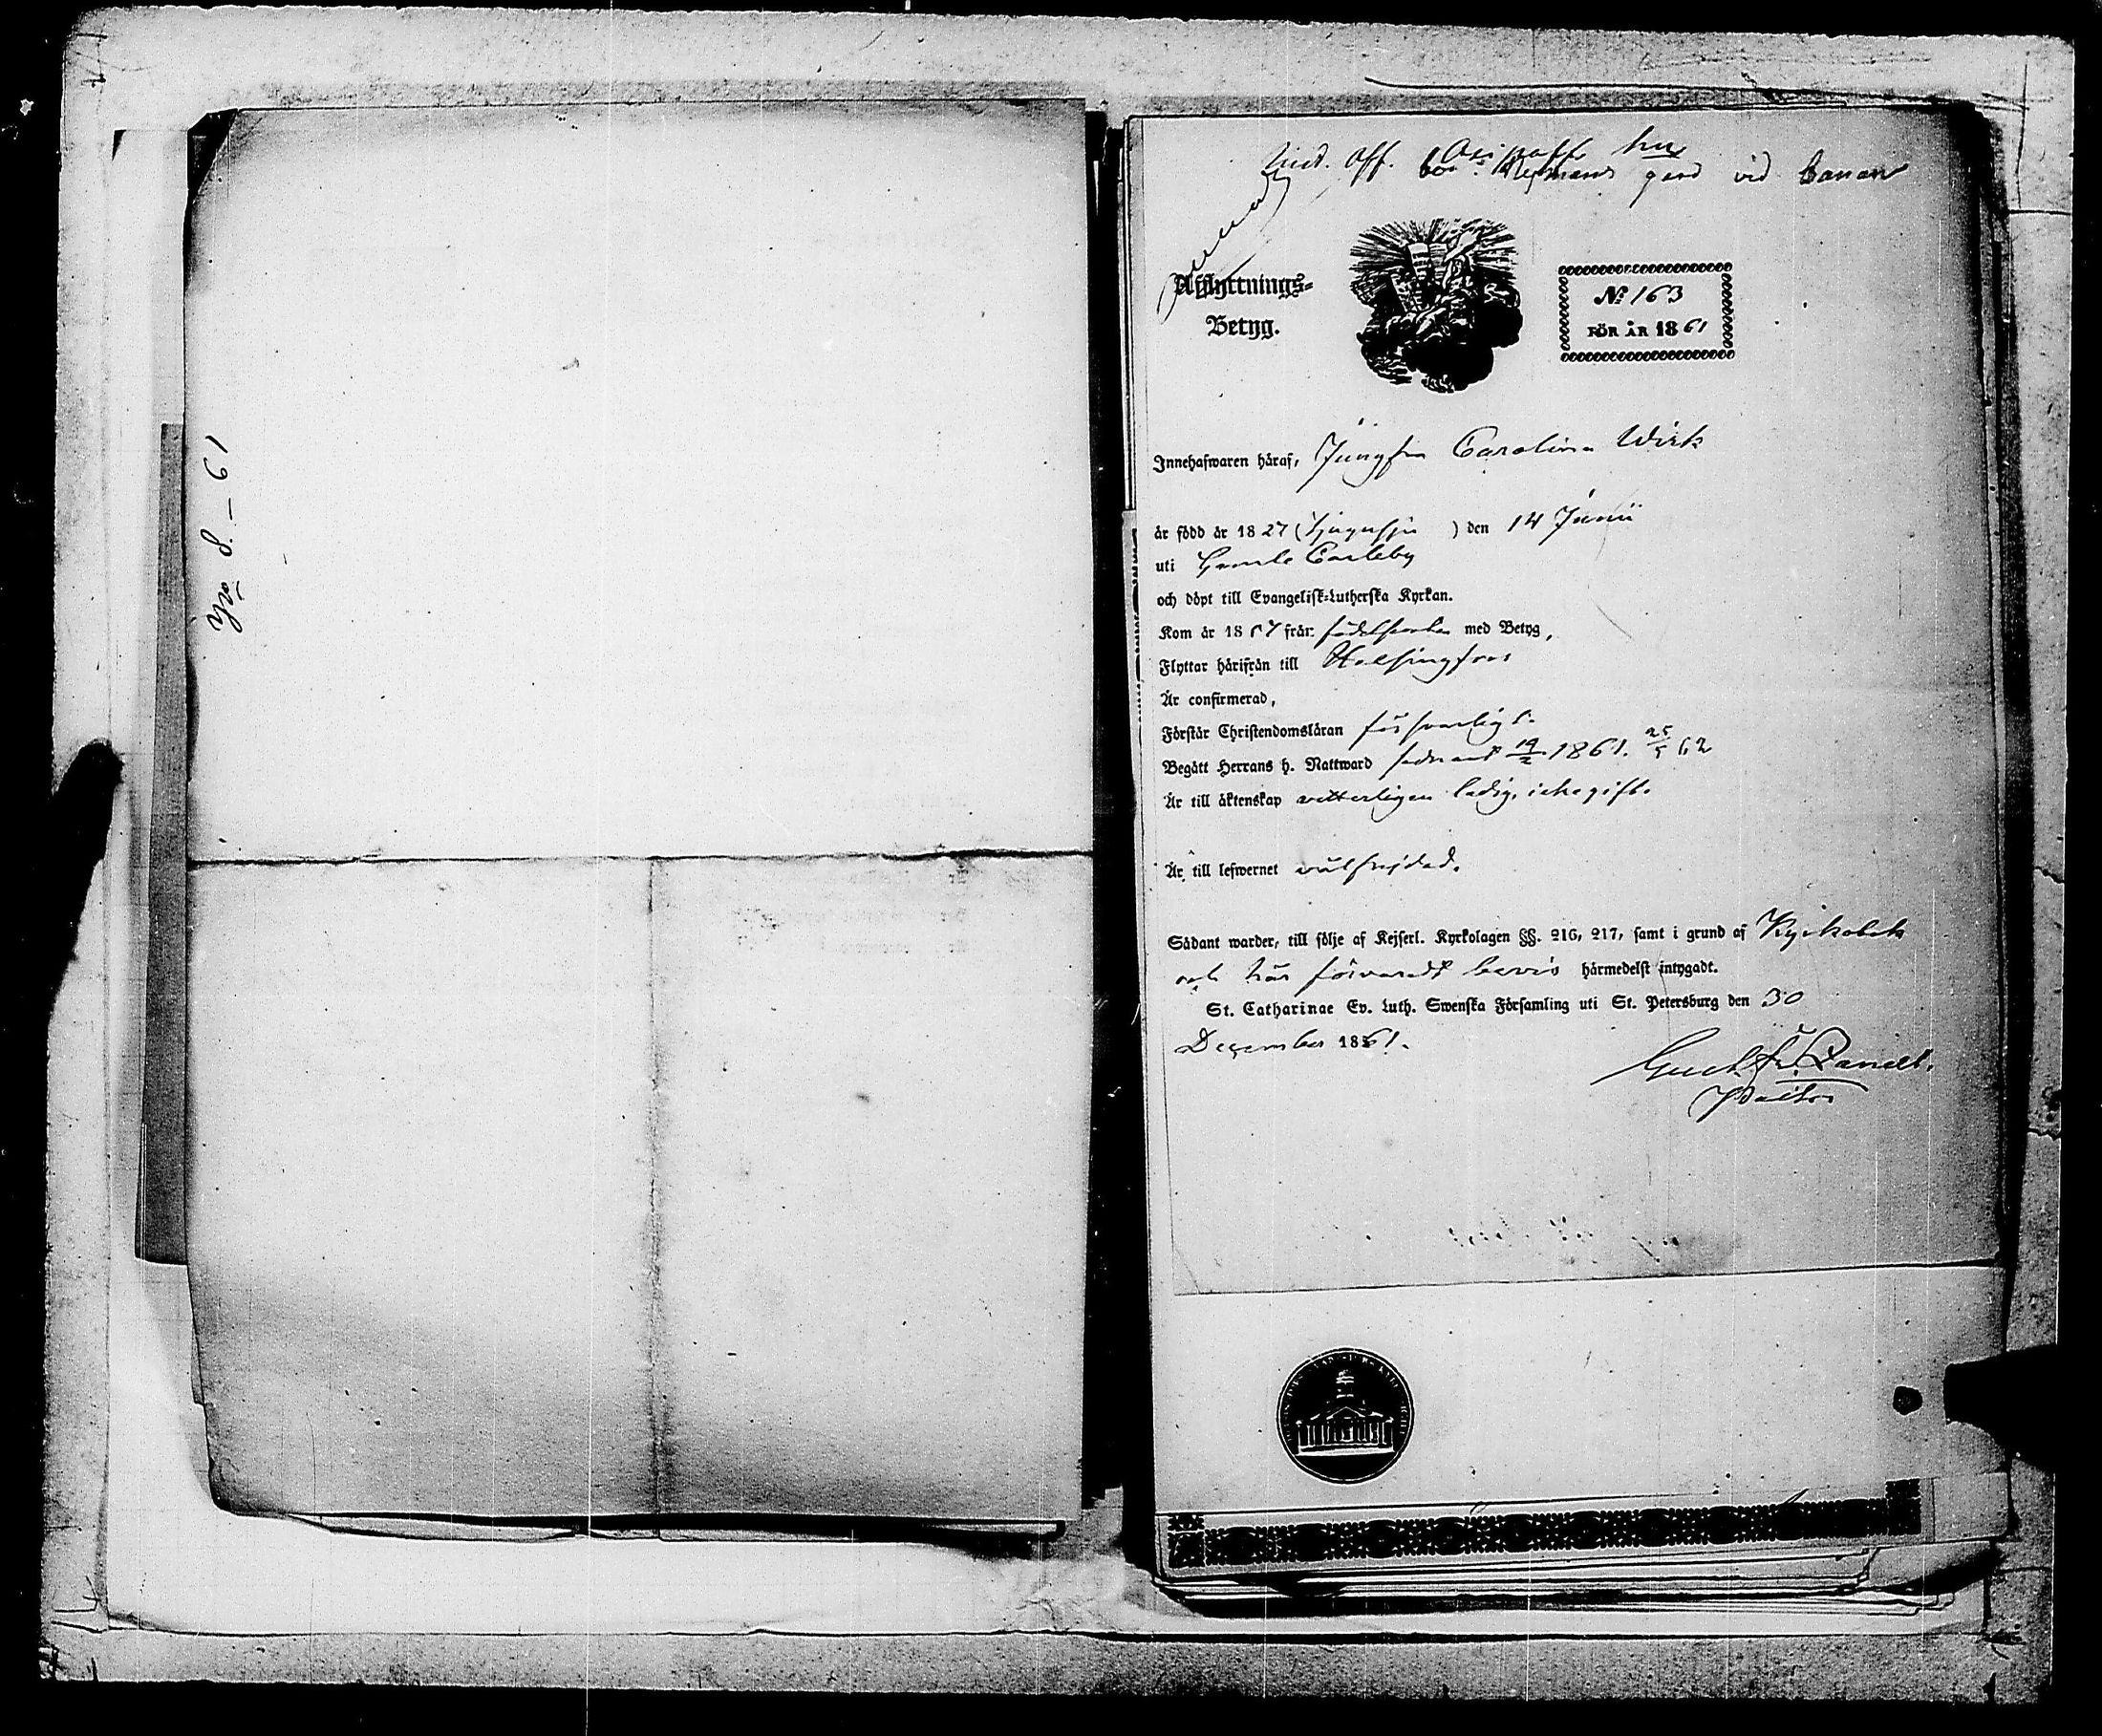 bor Nymans gård vid Canan
Afflyttnings-
Betyg.
№ 163
FÖR ÅR 1861
Innehafwaren häraf, Jungfru Carolina Wirk
är född år 1827 (tjugusju ) den 14 Junii
uti Gamle Carleby
och döpt till Evangelisk-Lutherska Kyrkan.
Kom år 18 från födelseorten med Betyg,
Flyttar härifrån till Helsingfors
Är confirmerad,
Förstår Christendomsläran försvarligt.
Begått Herrans h. Nattward sednast 19/2 1861. 25/5 62
Är till äktenskap vetterligen ledig, icke gift.
Är till lefwernet välfrejdad.
Sådant warder, till följe af Kejserl. Kyrkolagen §§. 216, 217, samt i grund af Kyrkobok
och här förvaradt bevis härmedelst intygadt.
St. Catharinae Ev. Luth. Swenska Församling uti St. Petersburg den 30
December 1861.
Pastor
19 – 8 –61